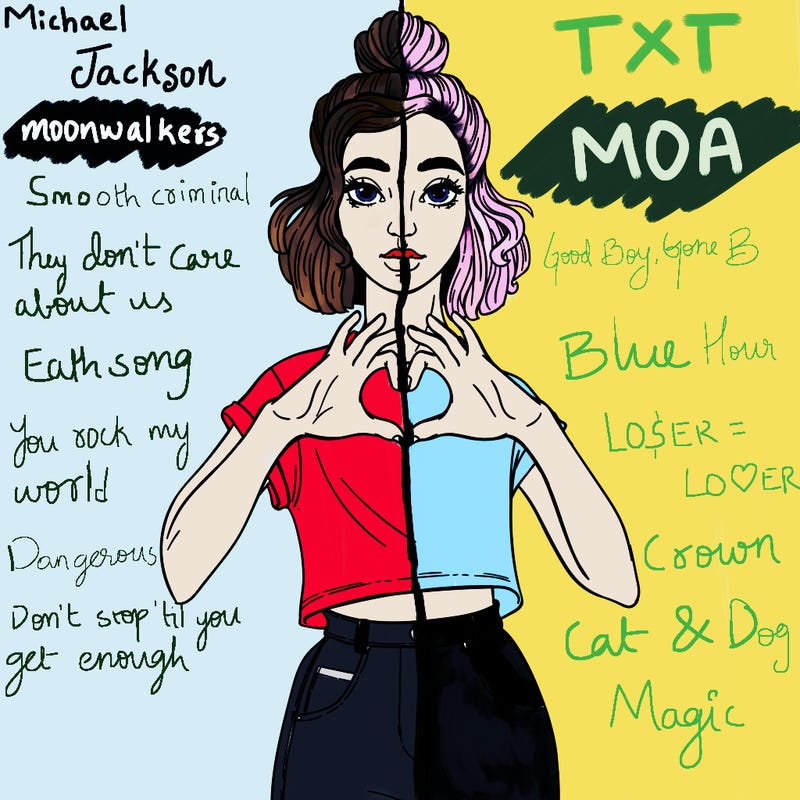 Michael
Jackson
moonwalkers
Smooth criminal
They don't care
about us
Eath song
You rock my
world
Dangerous
Don't stop 'til you
get enough
TXT
MOA
Good Boy, Gone B
Blue Hour
LO$ER =
LO♡ER
Crown
Cat & Dog
Magic